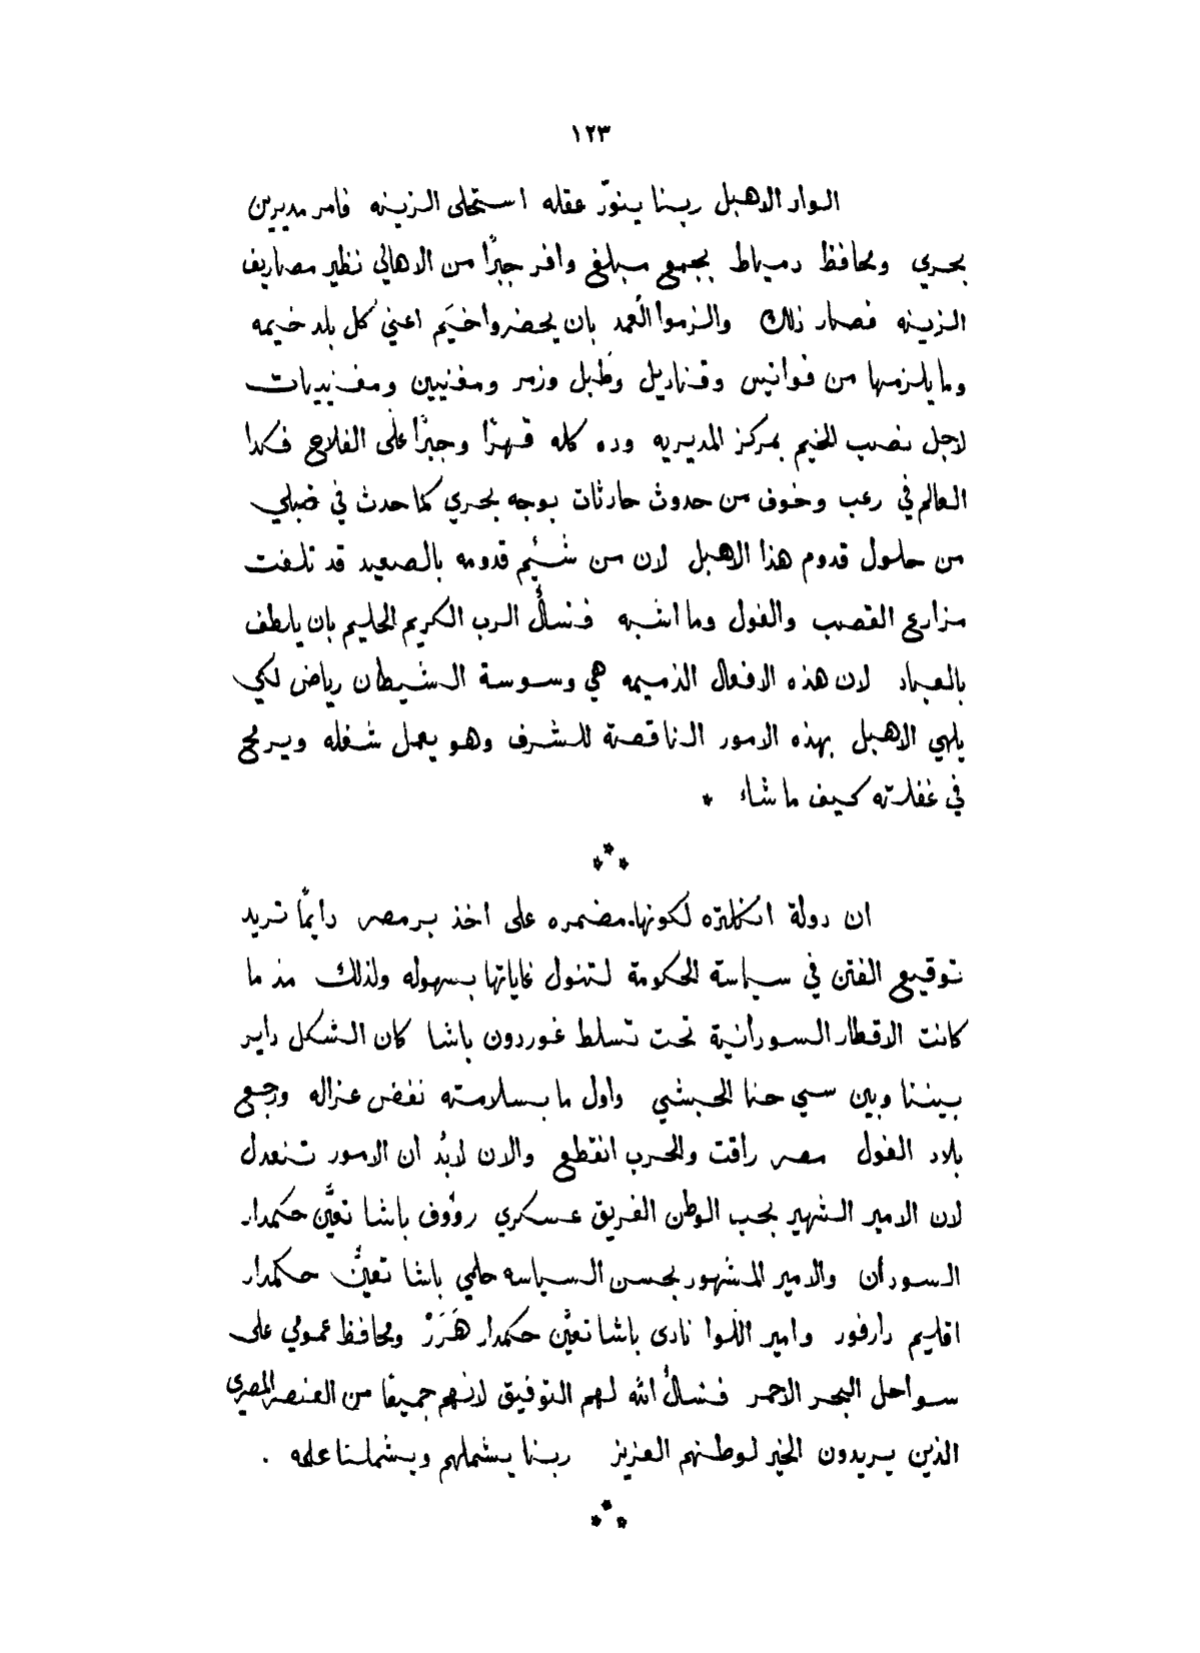 ١٢٣
الواد الاهبل ربنا ينوّر عقله استحلى الزينه فامر مديرين
بحري ومحافظ دمياط بجمع مبلغ وافر جبرًا من الاهالي نظير مصاريف
الزينه فصار ذلك والزموا العُمد بان يحضروا خيَم اعني كل بلد خيمه
وما يلزمها من فوانيس وقناديل وطَبل وزمر ومغنيين ومغنييات
لاجل نصب الخيم بمركز المديريه وده كله قهرًا وجبرًا على الفلاح فكدا
العالم في رعب وخوف من حدوث حادثات بوجه بحري كما حدث في قبلي
من حلول قدوم هذا الاهبل لان من شئيم قدومه بالصعيد قد تلفت
مزارع القصب والفول وما اشبه فنسأل الرب الكريم الحليم بان يلطف
بالعباد لان هذه الافعال الذميمه هي وسوسة الشيطان رياض لكي
يلهي الاهبل بهذه الامور الناقصة للشرف وهو يعمل شغله ويبرمح
في غفلاته كيف ما شاء *
***
ان دولة انكلتره لكونها مضمره على اخذ بر مصر دايمًا تريد
توقيع الفتن في سياسة الحكومة لتنول غاياتها بسهوله ولذلك مذ ما
كانت الاقطار السودانية تحت تسلط غوردون باشا كان الشكل داير
بيننا وبين سي حنا الحبشي واول ما بسلامته نفض عزاله ورجع
بلاد الغول مصر راقت والحرب انقطع والان لابُد ان الامور تنعدل
لان الامير الشهير بحب الوطن الفريق عسكري رؤوف باشا تعيَّن حكمدار
السودان والامير المشهور بحسن السياسه حلمي باشا تعيَّن حكمدار
اقليم دارفور وامير اللوا نادى باشا تعيَّن حكمدار هَرَرْ ومحافظ عمومي على
سواحل البحر الاحمر فنسأل الله لهم التوفيق لانهم جميعًا من العنصر المصري
الذين يريدون الخير لوطنهم العزيز ربنا يشملهم ويشملنا عليه .
***